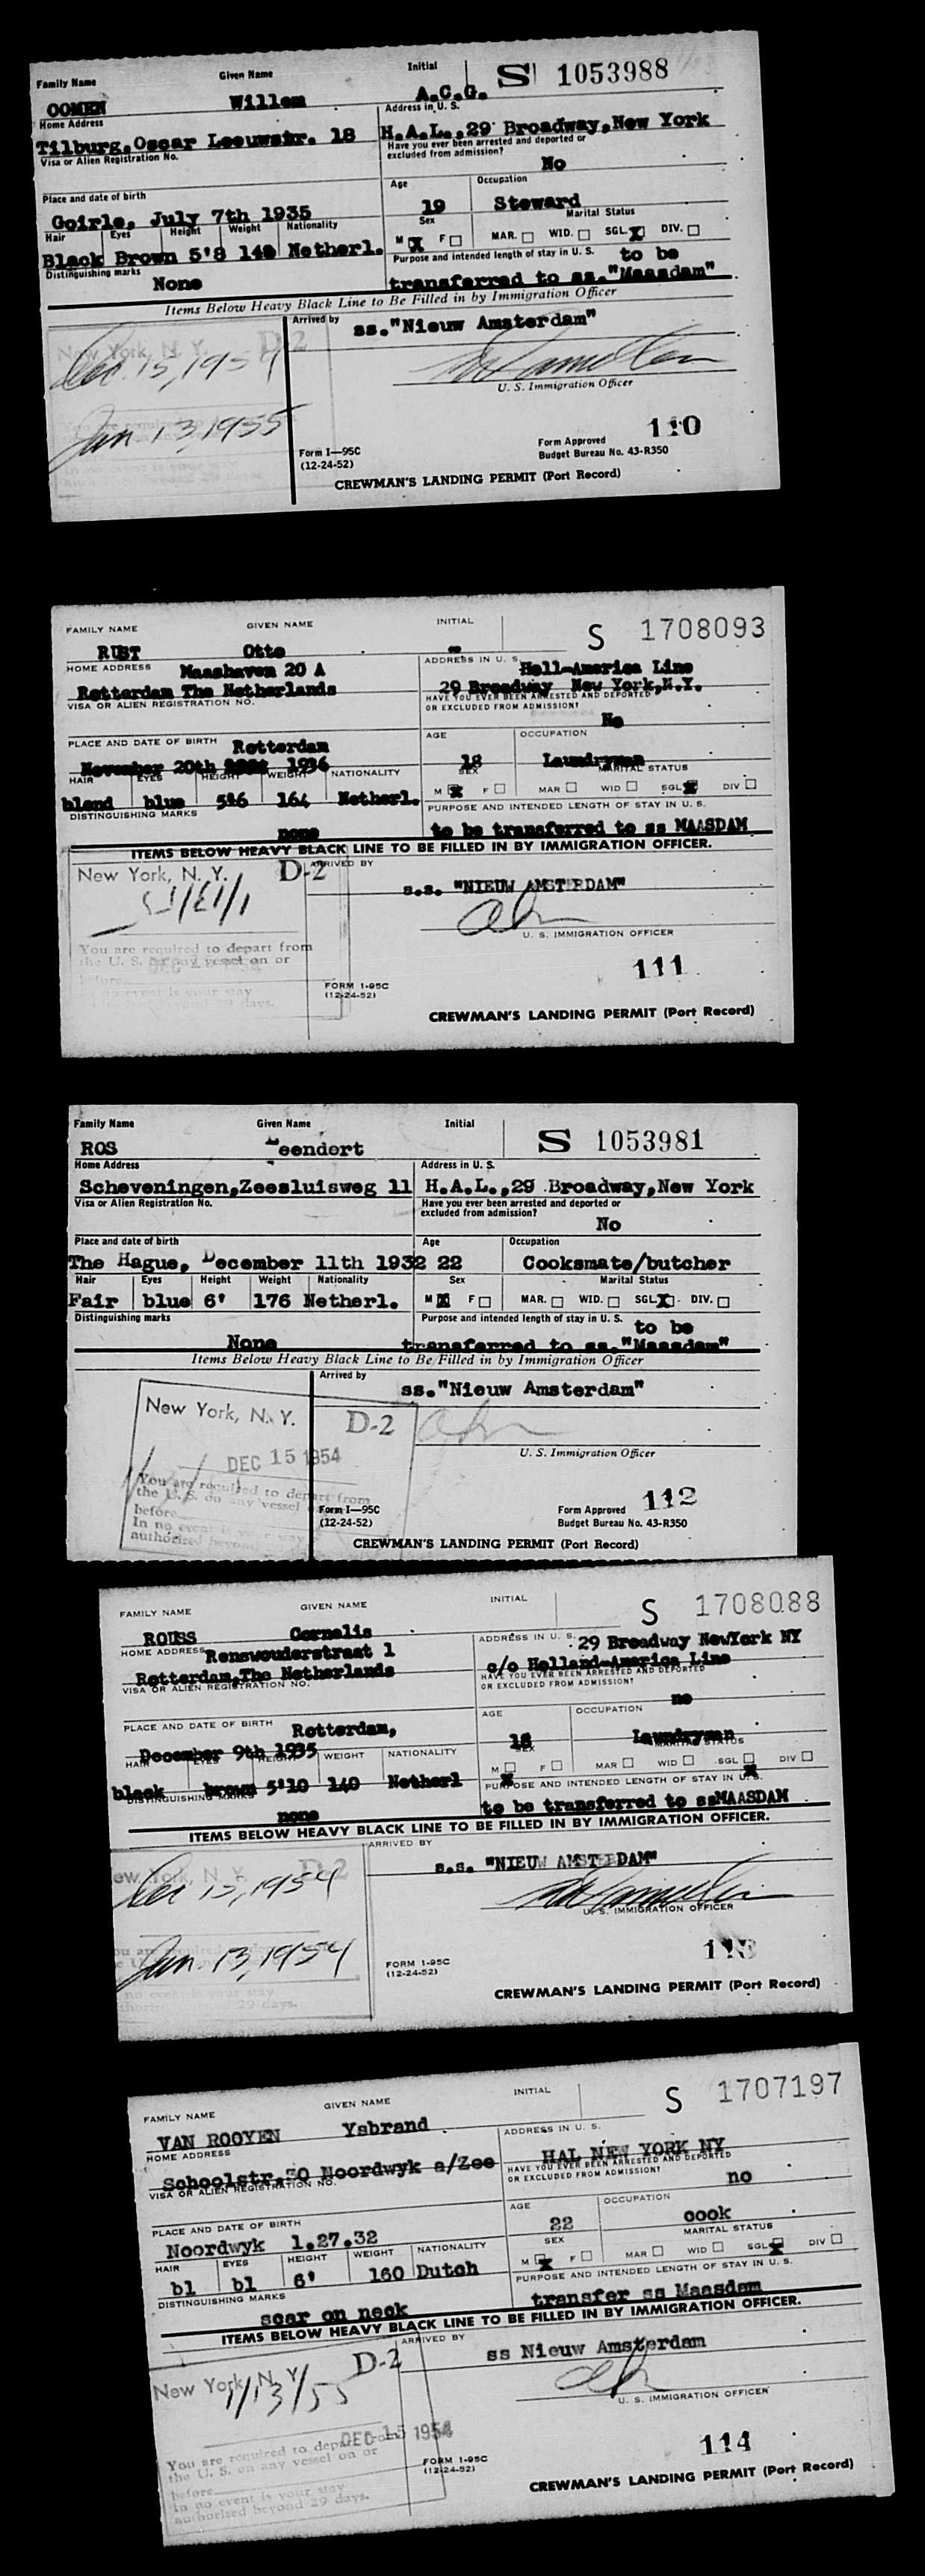 Family Name Given Name Initial S 1053988
OOMEN Willem A.C.G.
Home Address Address in U. S.
Tilburg, Oscar Leeuwstr. 18 H.A.L., 29 Broadway, New York
Visa or Alien Registration No. Have you ever been arrested and deported or
excluded from admission?
No
Place and date of birth Age Occupation
Goirle, July 7th 1935 19 Steward
Hair Eyes Height Weight Nationality Sex Marital Status
Black Brown 5'8 140 Netherl. M X F MAR. WID. SGL. X DIV.
Distinguishing marks Purpose and intended length of stay in U. S. to be
None transferred to ss. "Maasdam"
Items Below Heavy Black Line to Be Filled in by Immigration Officer
Arrived by ss. "Nieuw Amsterdam"
New York, N. Y. D-2
Dec. 15, 1954
U. S. Immigration Officer
Jan 13, 1955
110
Form I—95C Form Approved
(12-24-52) Budget Bureau No. 43-R350
CREWMAN'S LANDING PERMIT (Port Record)
FAMILY NAME GIVEN NAME INITIAL S 1708093
RUST Otto -
HOME ADDRESS Maashaven 20 A ADDRESS IN U. S. Holl-America Line
Rotterdam The Netherlands 29 Broadway New York, N.Y.
VISA OR ALIEN REGISTRATION NO. HAVE YOU EVER BEEN ARRESTED AND DEPORTED
OR EXCLUDED FROM ADMISSION?
No
PLACE AND DATE OF BIRTH Rotterdam AGE OCCUPATION
November 20th 1936 18 Laundryman
HAIR EYES HEIGHT WEIGHT NATIONALITY SEX MARITAL STATUS
blond blue 5'6 164 Netherl. M X F MAR WID SGL X DIV
DISTINGUISHING MARKS PURPOSE AND INTENDED LENGTH OF STAY IN U. S.
none to be transferred to ss MAASDAM
ITEMS BELOW HEAVY BLACK LINE TO BE FILLED IN BY IMMIGRATION OFFICER.
New York, N. Y. D-2 ARRIVED BY
s.s. "NIEUW AMSTERDAM"
U. S. IMMIGRATION OFFICER
You are required to depart from
the U. S. on any vessel on or
before
in no event is your stay
beyond 29 days.
111
FORM I-95C
(12-24-52)
CREWMAN'S LANDING PERMIT (Port Record)
Family Name Given Name Initial S 1053981
ROS Leendert
Home Address Address in U. S.
Scheveningen, Zeesluisweg 11 H.A.L., 29 Broadway, New York
Visa or Alien Registration No. Have you ever been arrested and deported or
excluded from admission?
No
Place and date of birth Age Occupation
The Hague, December 11th 1932 22 Cooksmate/butcher
Hair Eyes Height Weight Nationality Sex Marital Status
Fair blue 6' 176 Netherl. M X F MAR. WID. SGL. X DIV.
Distinguishing marks Purpose and intended length of stay in U. S. to be
None transferred to ss. "Maasdam"
Items Below Heavy Black Line to Be Filled in by Immigration Officer
Arrived by
ss. "Nieuw Amsterdam"
New York, N. Y. D-2
DEC 15 1954
U. S. Immigration Officer
You are required to depart from
the U. S. on any vessel
before
In no event is your stay
authorized beyond
112
Form I—95C Form Approved
(12-24-52) Budget Bureau No. 43-R350
CREWMAN'S LANDING PERMIT (Port Record)
FAMILY NAME GIVEN NAME INITIAL S 1708088
ROUSS Cornelis
HOME ADDRESS Renswouderstraat 1 ADDRESS IN U. S. 29 Broadway NewYork NY
Rotterdam, The Netherlands c/o Holland-America Line
VISA OR ALIEN REGISTRATION NO. HAVE YOU EVER BEEN ARRESTED AND DEPORTED
OR EXCLUDED FROM ADMISSION?
no
PLACE AND DATE OF BIRTH Rotterdam, AGE OCCUPATION
December 9th 1935 18 Laundryman
HAIR EYES HEIGHT WEIGHT NATIONALITY SEX MARITAL STATUS
black brown 5'10 140 Netherl M X F MAR WID SGL X DIV
DISTINGUISHING MARKS PURPOSE AND INTENDED LENGTH OF STAY IN U. S.
none to be transferred to ssMAASDAM
ITEMS BELOW HEAVY BLACK LINE TO BE FILLED IN BY IMMIGRATION OFFICER.
ARRIVED BY
New York, N. Y. D-2
s.s. "NIEUW AMSTERDAM"
Dec 15, 1954
U. S. IMMIGRATION OFFICER
Jan. 13, 1954
no event is your stay
29 days.
113
FORM I-95C
(12-24-52)
CREWMAN'S LANDING PERMIT (Port Record)
FAMILY NAME GIVEN NAME INITIAL S 1707197
VAN ROOYEN Ysbrand
HOME ADDRESS ADDRESS IN U. S.
Schoolstr. 50 Noordwyk a/Zee HAL NEW YORK NY
VISA OR ALIEN REGISTRATION NO. HAVE YOU EVER BEEN ARRESTED AND DEPORTED
OR EXCLUDED FROM ADMISSION?
no
PLACE AND DATE OF BIRTH AGE OCCUPATION
Noordwyk 1.27.32 22 cook
HAIR EYES HEIGHT WEIGHT NATIONALITY SEX MARITAL STATUS
bl bl 6' 160 Dutch M X F MAR WID SGL X DIV
DISTINGUISHING MARKS PURPOSE AND INTENDED LENGTH OF STAY IN U. S.
scar on neck transfer ss Maasdam
ITEMS BELOW HEAVY BLACK LINE TO BE FILLED IN BY IMMIGRATION OFFICER.
ARRIVED BY
ss Nieuw Amsterdam
New York, N. Y. D-2
1/13/55
U. S. IMMIGRATION OFFICER
DEC 15 1954
You are required to depart from
the U. S. on any vessel on or
before
In no event is your stay
authorized beyond 29 days.
114
FORM I-95C
(12-24-52)
CREWMAN'S LANDING PERMIT (Port Record)